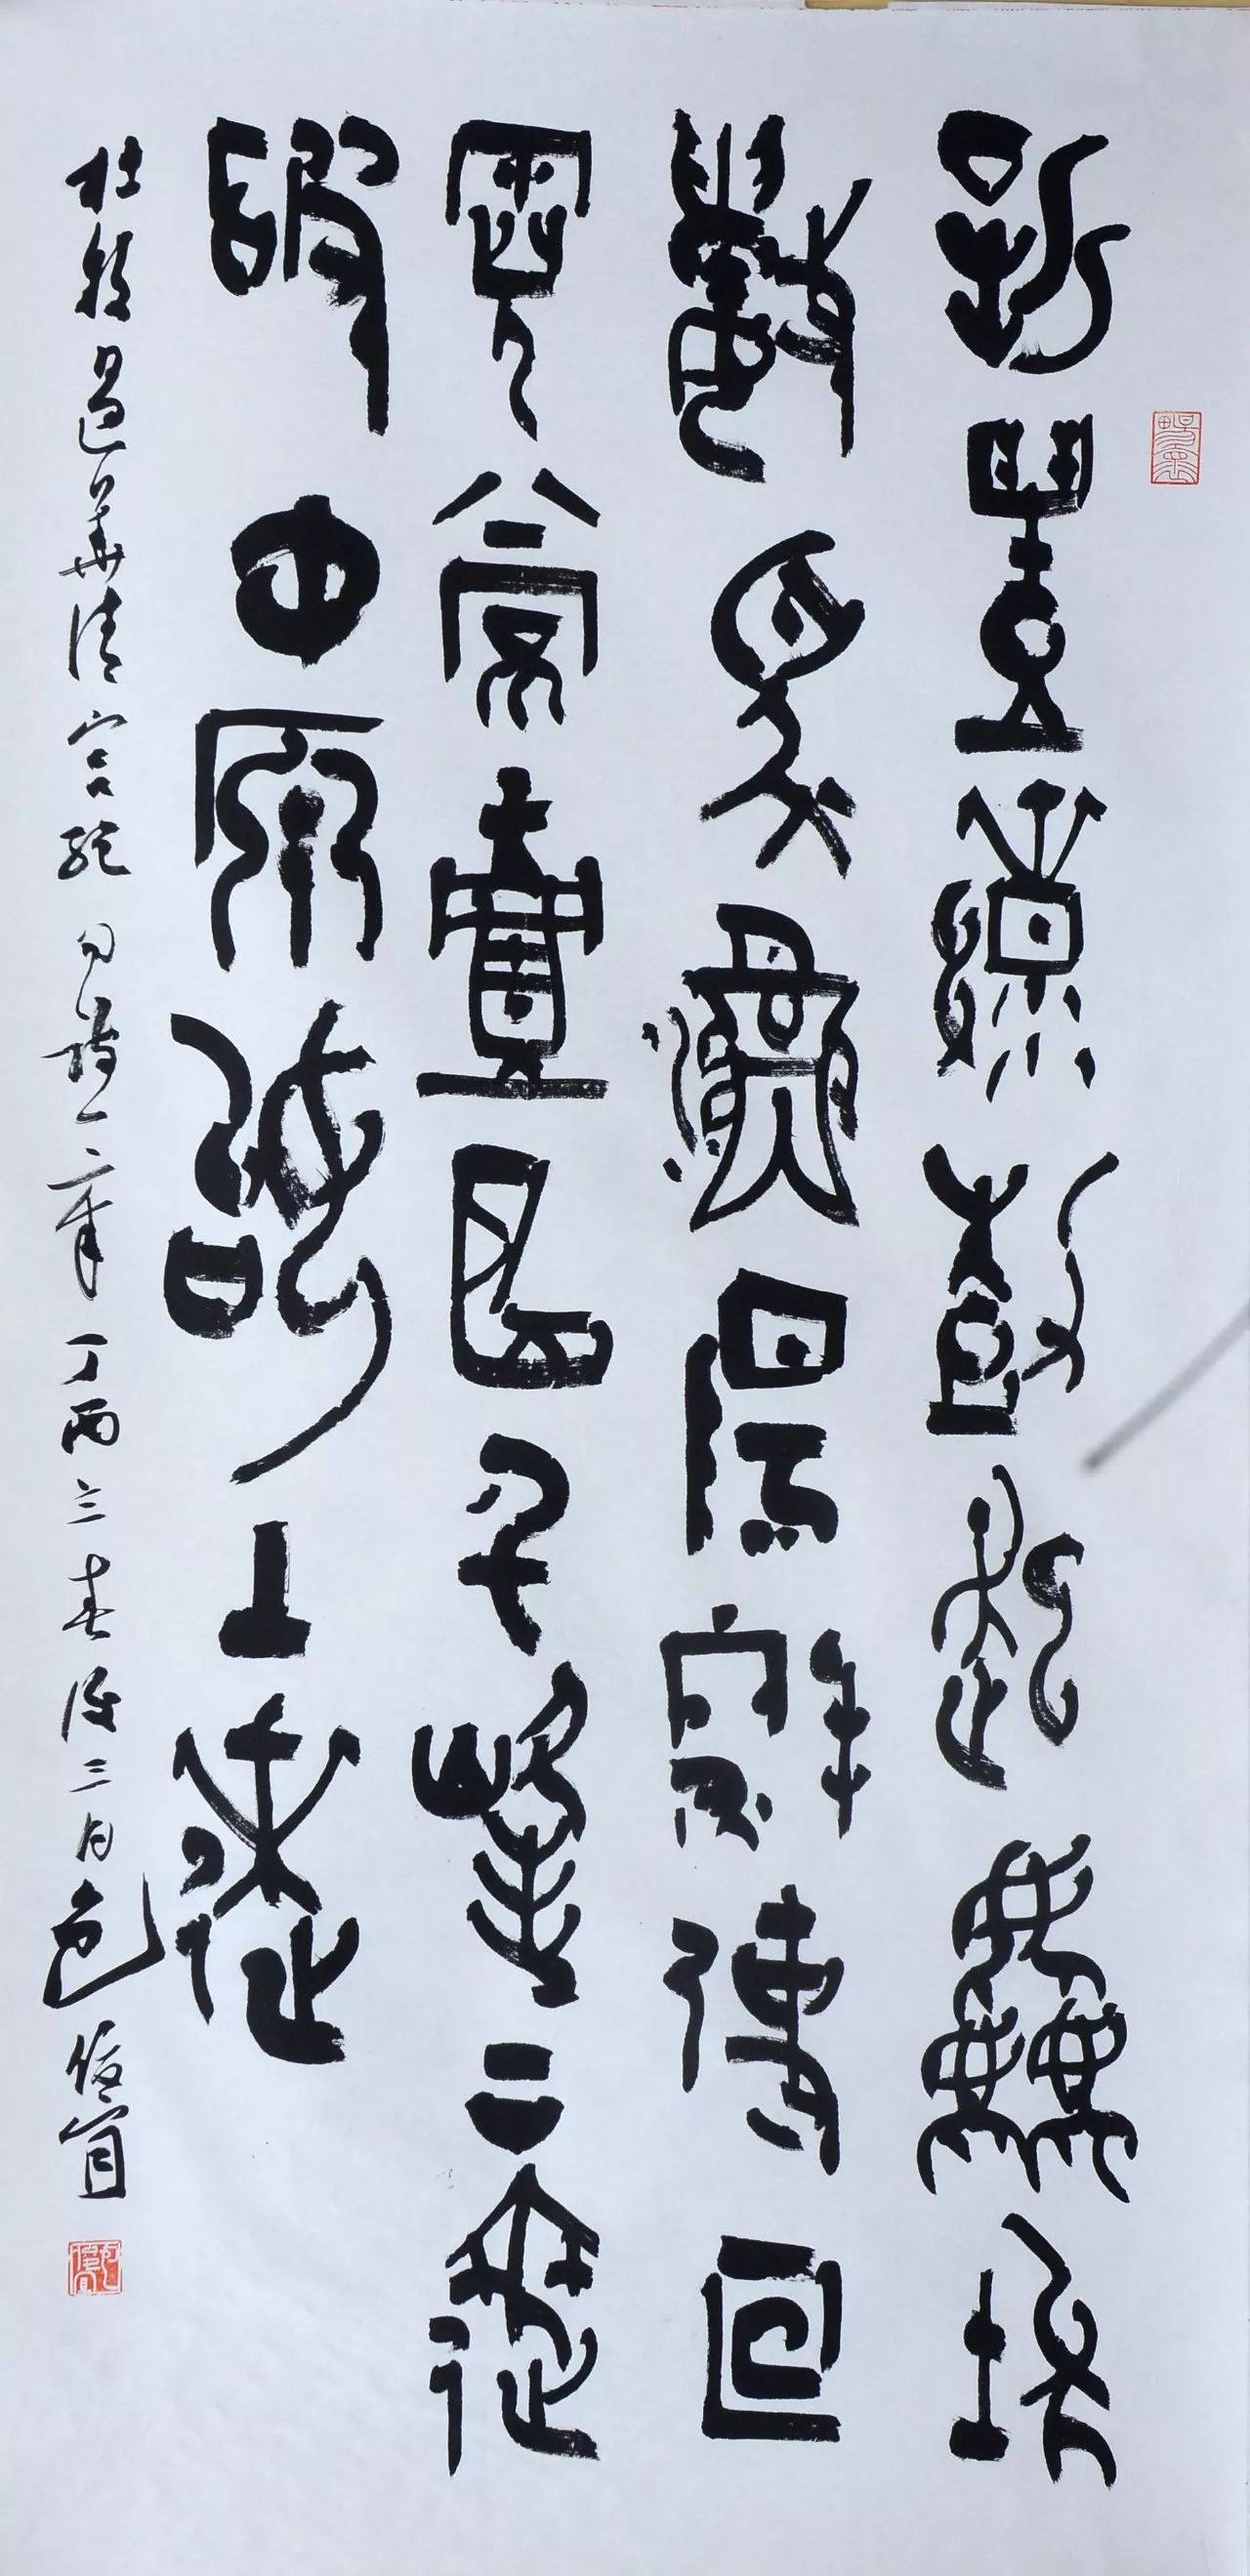 新豐綠樹起黃埃
數騎漁陽探使回
霓裳壹曲千峰上舞
破中原始下來
杜牧過華清宮絕句詩一章 丁酉三春後三月